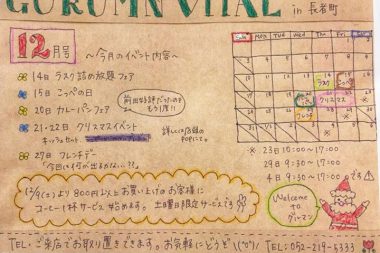 GURUMN VITAL in 長者町
12月号
～今月のイベント内容～
14日 ラスク詰め放題フェア
15日 こっぺの日
20日 カレーパンフェア
前回好評だったのでもう1度!!
21・22日 クリスマスイベント
キッシュセット
詳しくは店頭のPOPにて。
27日 フレンチデー
今日は何が出るかな…??
12/9(土)より 800円以上お買い上げのお客様に
コーヒー1杯サービス 始めます。土曜日限定サービスです
SUN MON TUE WED THU FRI
ラスク
クリスマス
フレンチ
※23日 10:00〜17:00
29日 9:30〜17:00
4日 9:30〜17:00
Welcome To グルマン
TEL・ご来店でお取り置きできます。お気軽にどうぞ\(^o^)/ TEL:052-219-5333